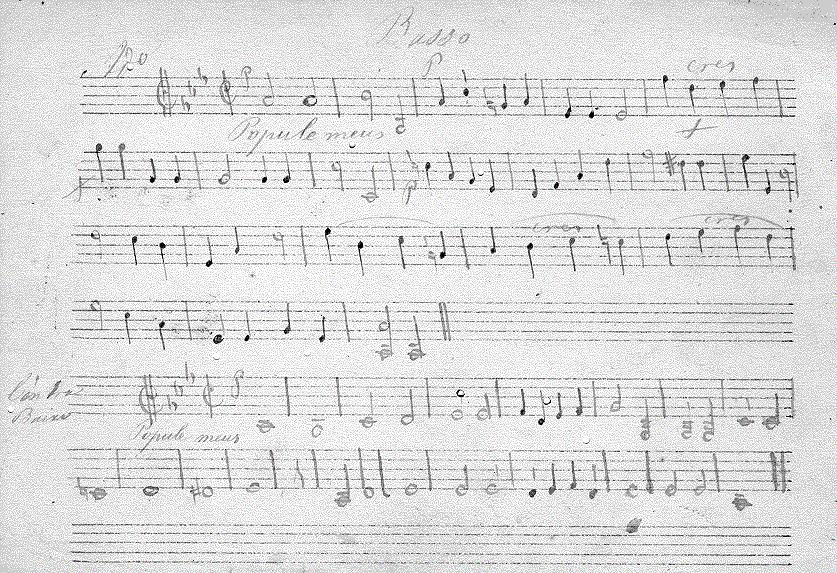 Basso
P
cres
Populemeus
P
cres
cres
Contra
P
Baixo
Popule meus